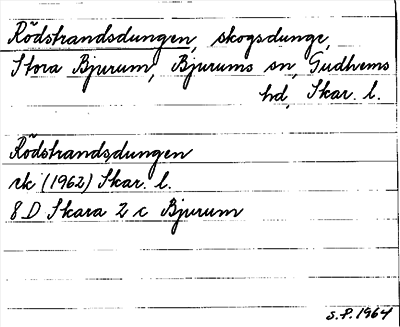 Rödstrandsdungen, skogsdunge,
Stora Bjurum, Bjurums sn, Gudhems
hd, Skar. l.
Rödstrandsdungen
rk (1962) Skar. l.
8 D Skara 2 c Bjurum
S.P. 1964